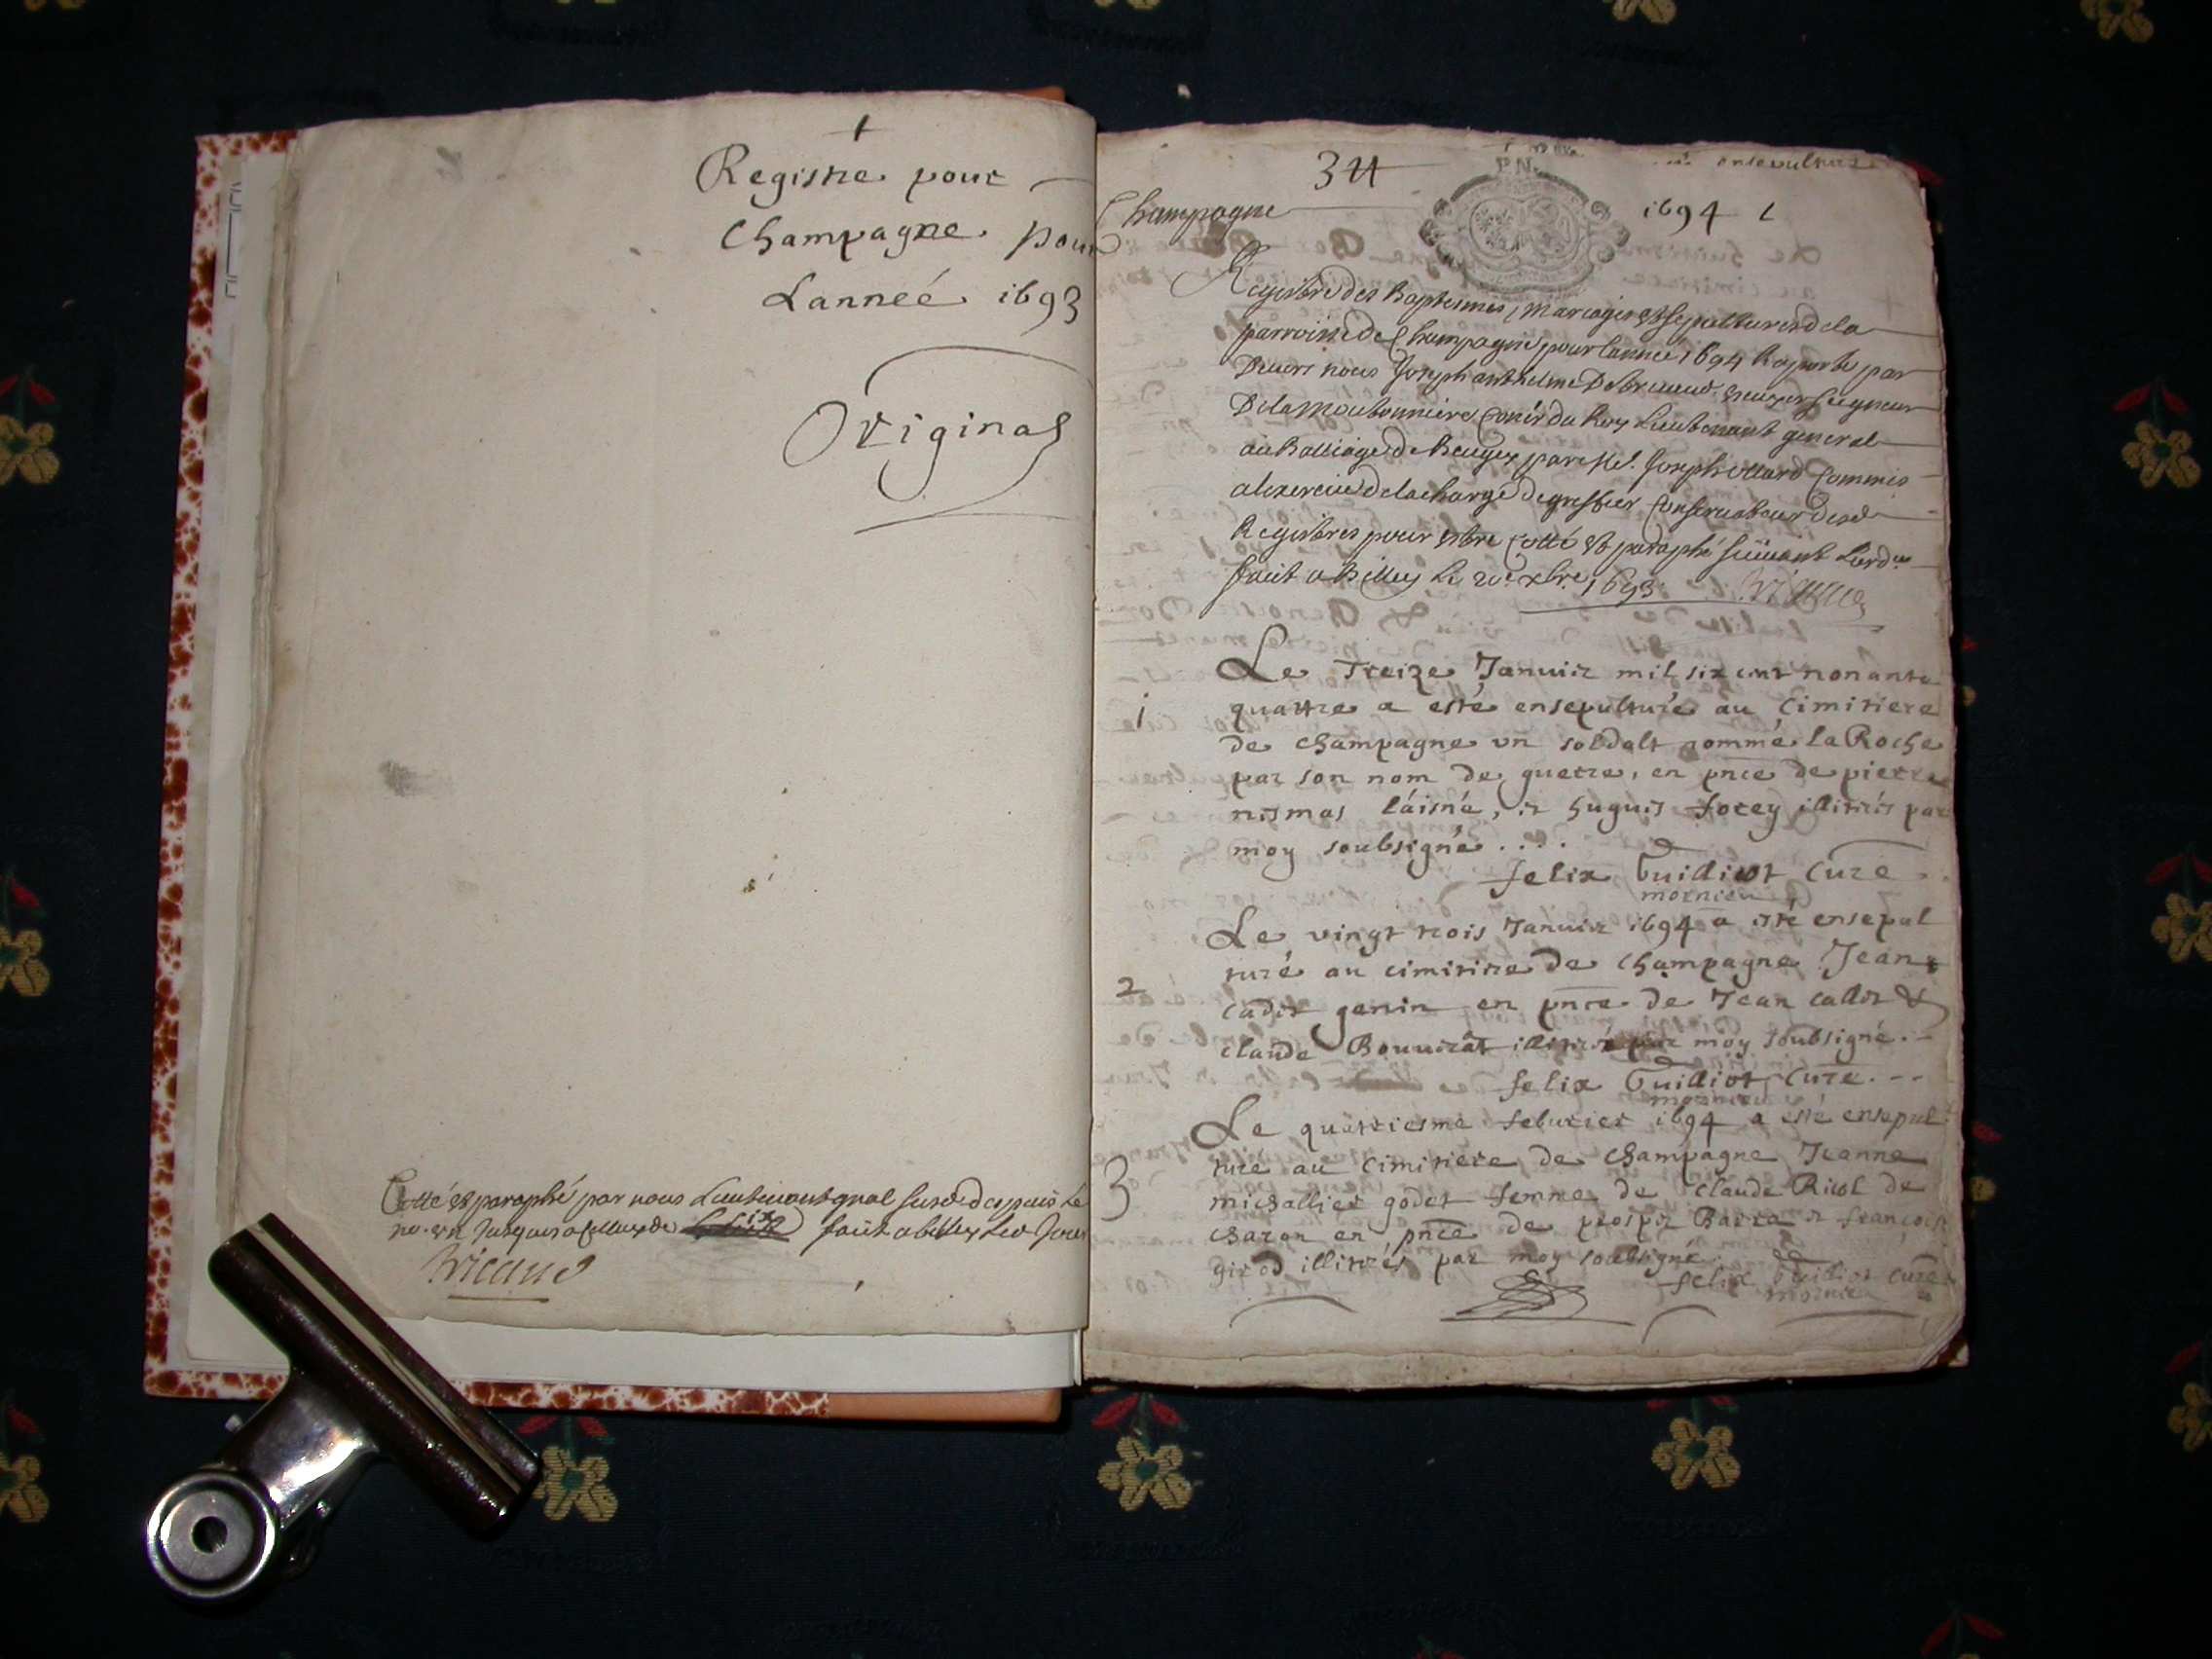 Registre pour
Champagne pour
Lanneé 1693
Original
Cotté et paraphé par nous Lieutenant gnal susd despuis le
no. un jusques a celluy de six fait a belley led Jour
34
ensepultur
Champagne
1694 1
Registre des Baptesmes, mariages et sepultures de la
parroisse de Champagne pour lannee 1694 Raporté par
Devers nous Joseph anthelme seigneur
De la conér du Roy Lieutenant general
au Balliage de Beugey par Me. Joseph Commis
a lexercice de la charge de greffier Conservateur desd
Registres pour estre cotté et paraphé suivant Lord
fait a Belley le 20e xbre 1693
Le Treize Januier mil six cent nonante
1
quattre a esté ensepulturé au Cimitiere
de Champagne un soldalt nommé la Roche
par son nom de guerre, en pnce de pierre
nismas láisné, et hugues forey illitirés par
moy soubsigné ....
felix Guilliot Curé
mornieu
Le vingt trois Januier 1694 a esté ensepul
turé au cimitire de Champagne Jean
2
cadit genin en pnce de Jean callet &
claude Bouuerat illitirés par moy soubsigné.
felix Guilliot Curé.--
mornieu
Le quattriesme feburier 1694 a esté ensepul
ture au Cimitiere de Champagne Jeanne
3
michallier godet femme de claude Ricol de
charon en pnce de prosper Barra et françois
girod illitirés par moy soubsigné.
felix Guilliot curé
mornieu